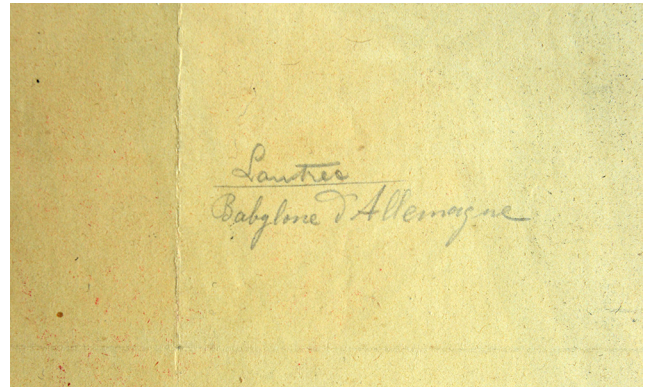 Lautrec
Babylone d'Allemagne